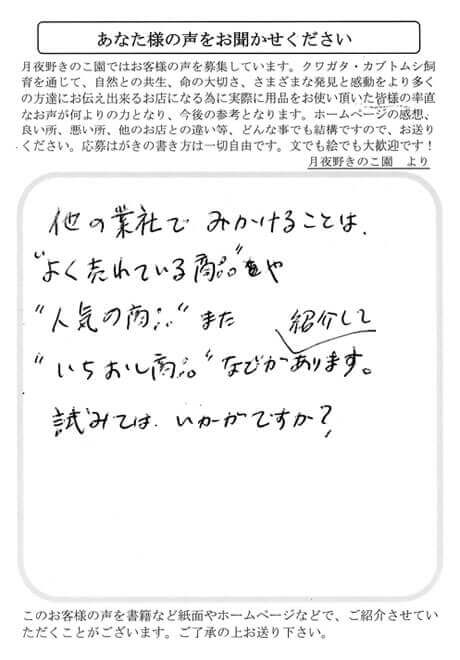 あなた様の声をお聞かせください
月夜野きのこ園ではお客様の声を募集しています。クワガタ・カブトムシ飼
育を通じて、自然との共生、命の大切さ、さまざまな発見と感動をより多く
の方達にお伝え出来るお店になる為に実際に用品をお使い頂いた皆様の率直
なお声が何よりの力となり、今後の参考となります。ホームページの感想、
良い所、悪い所、他のお店との違い等、どんな事でも結構ですので、お送り
ください。応募はがきの書き方は一切自由です。文でも絵でも大歓迎です！
月夜野きのこ園　より
他の業社で みかけることは、
"よく売れている商品"や
"人気の商品" また 紹介して
"いちおし商品" などがあります。
試みては いかがですか？
このお客様の声を書籍など紙面やホームページなどで、ご紹介させてい
ただくことがございます。ご了承の上お送り下さい。